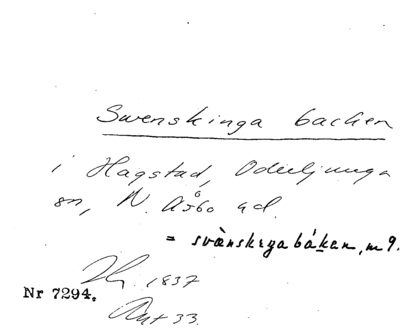 Swenskinga backen
i Hagstad, Oderljunga
sn, N. Åsbo hd.
= svànskegabákan, m 9.
1837
Nr 7294.
33.